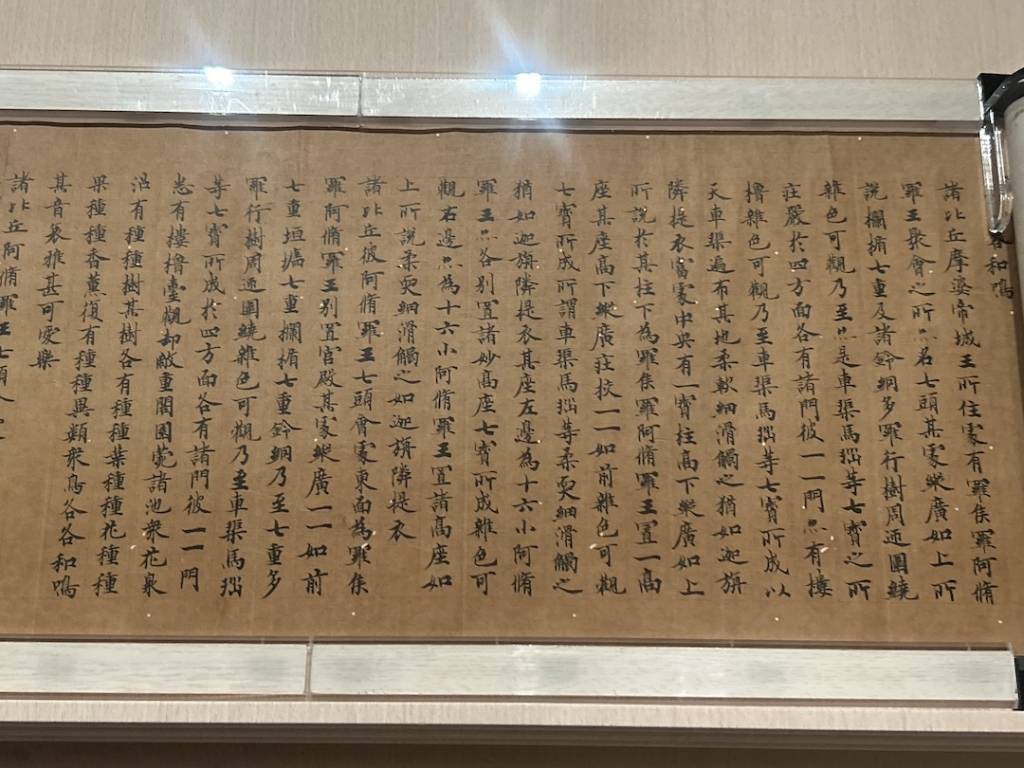 各和鳴
諸比丘摩婆帝城王所住處有羅睺羅阿脩
羅王聚會之所亦名七頭其處縱廣如上所
說欄楯七重及諸鈴網多羅行樹周迊圍繞
雜色可觀乃至亦是車𤦲馬瑙等七寶之所
莊嚴於四方面各有諸門彼一一門亦有樓
櫓雜色可觀乃至車𤦲馬瑙等七寶所成以
天車𤦲遍布其地柔軟細滑觸之猶如迦旃
隣提衣當處中央有一寶柱高下縱廣如上
所說於其柱下為羅睺羅阿脩羅王置一高
座其座高下縱廣莊挍一一如前雜色可觀
七寶所成所謂車𤦲馬瑙等柔耎細滑觸之
猶如迦旃隣提衣其座左邊為十六小阿脩
羅王亦各別置諸妙高座七寶所成雜色可
觀右邊亦為十六小阿脩羅王置諸高座如
上所說柔耎細滑觸之如迦旃隣提衣
諸比丘彼阿脩羅王七頭會處東面為羅睺
羅阿脩羅王別置宮殿其處縱廣一一如前
七重垣牆七重欄楯七重鈴網乃至七重多
羅行樹周迊圍繞雜色可觀乃至車𤦲馬瑙
等七寶所成於四方面各有諸門彼一一門
悉有樓櫓臺觀却敵重閣園菀諸池衆花泉
沼有種種樹其樹各有種種葉種種花種種
果種種香薰復有種種異類衆鳥各各和鳴
其音哀雅甚可愛樂
諸比丘阿脩羅王七頭